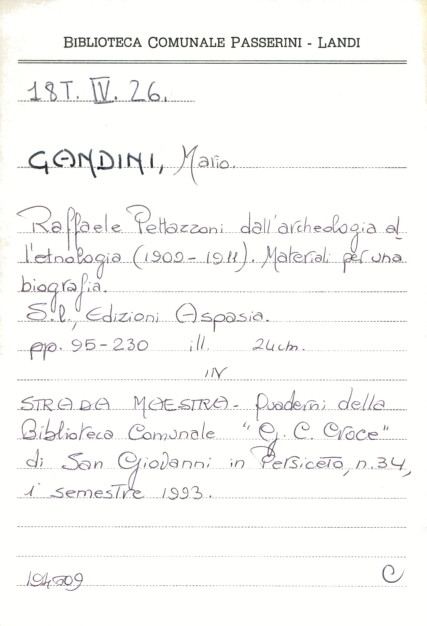 BIBLIOTECA COMUNALE PASSERINI - LANDI
18T. IV. 26.
GANDINI, Mario.
Raffaele Pettazzoni dall'archeologia al
l'etnologia (1909 - 1911). Materiali per una
biografia.
S.l., Edizioni Aspasia.
pp. 95-230 ill. 24cm.
IN
STRADA MAESTRA - Quaderni della
Biblioteca Comunale "G. C. Croce"
di San Giovanni in Persiceto, n.34,
1° semestre 1993.
C